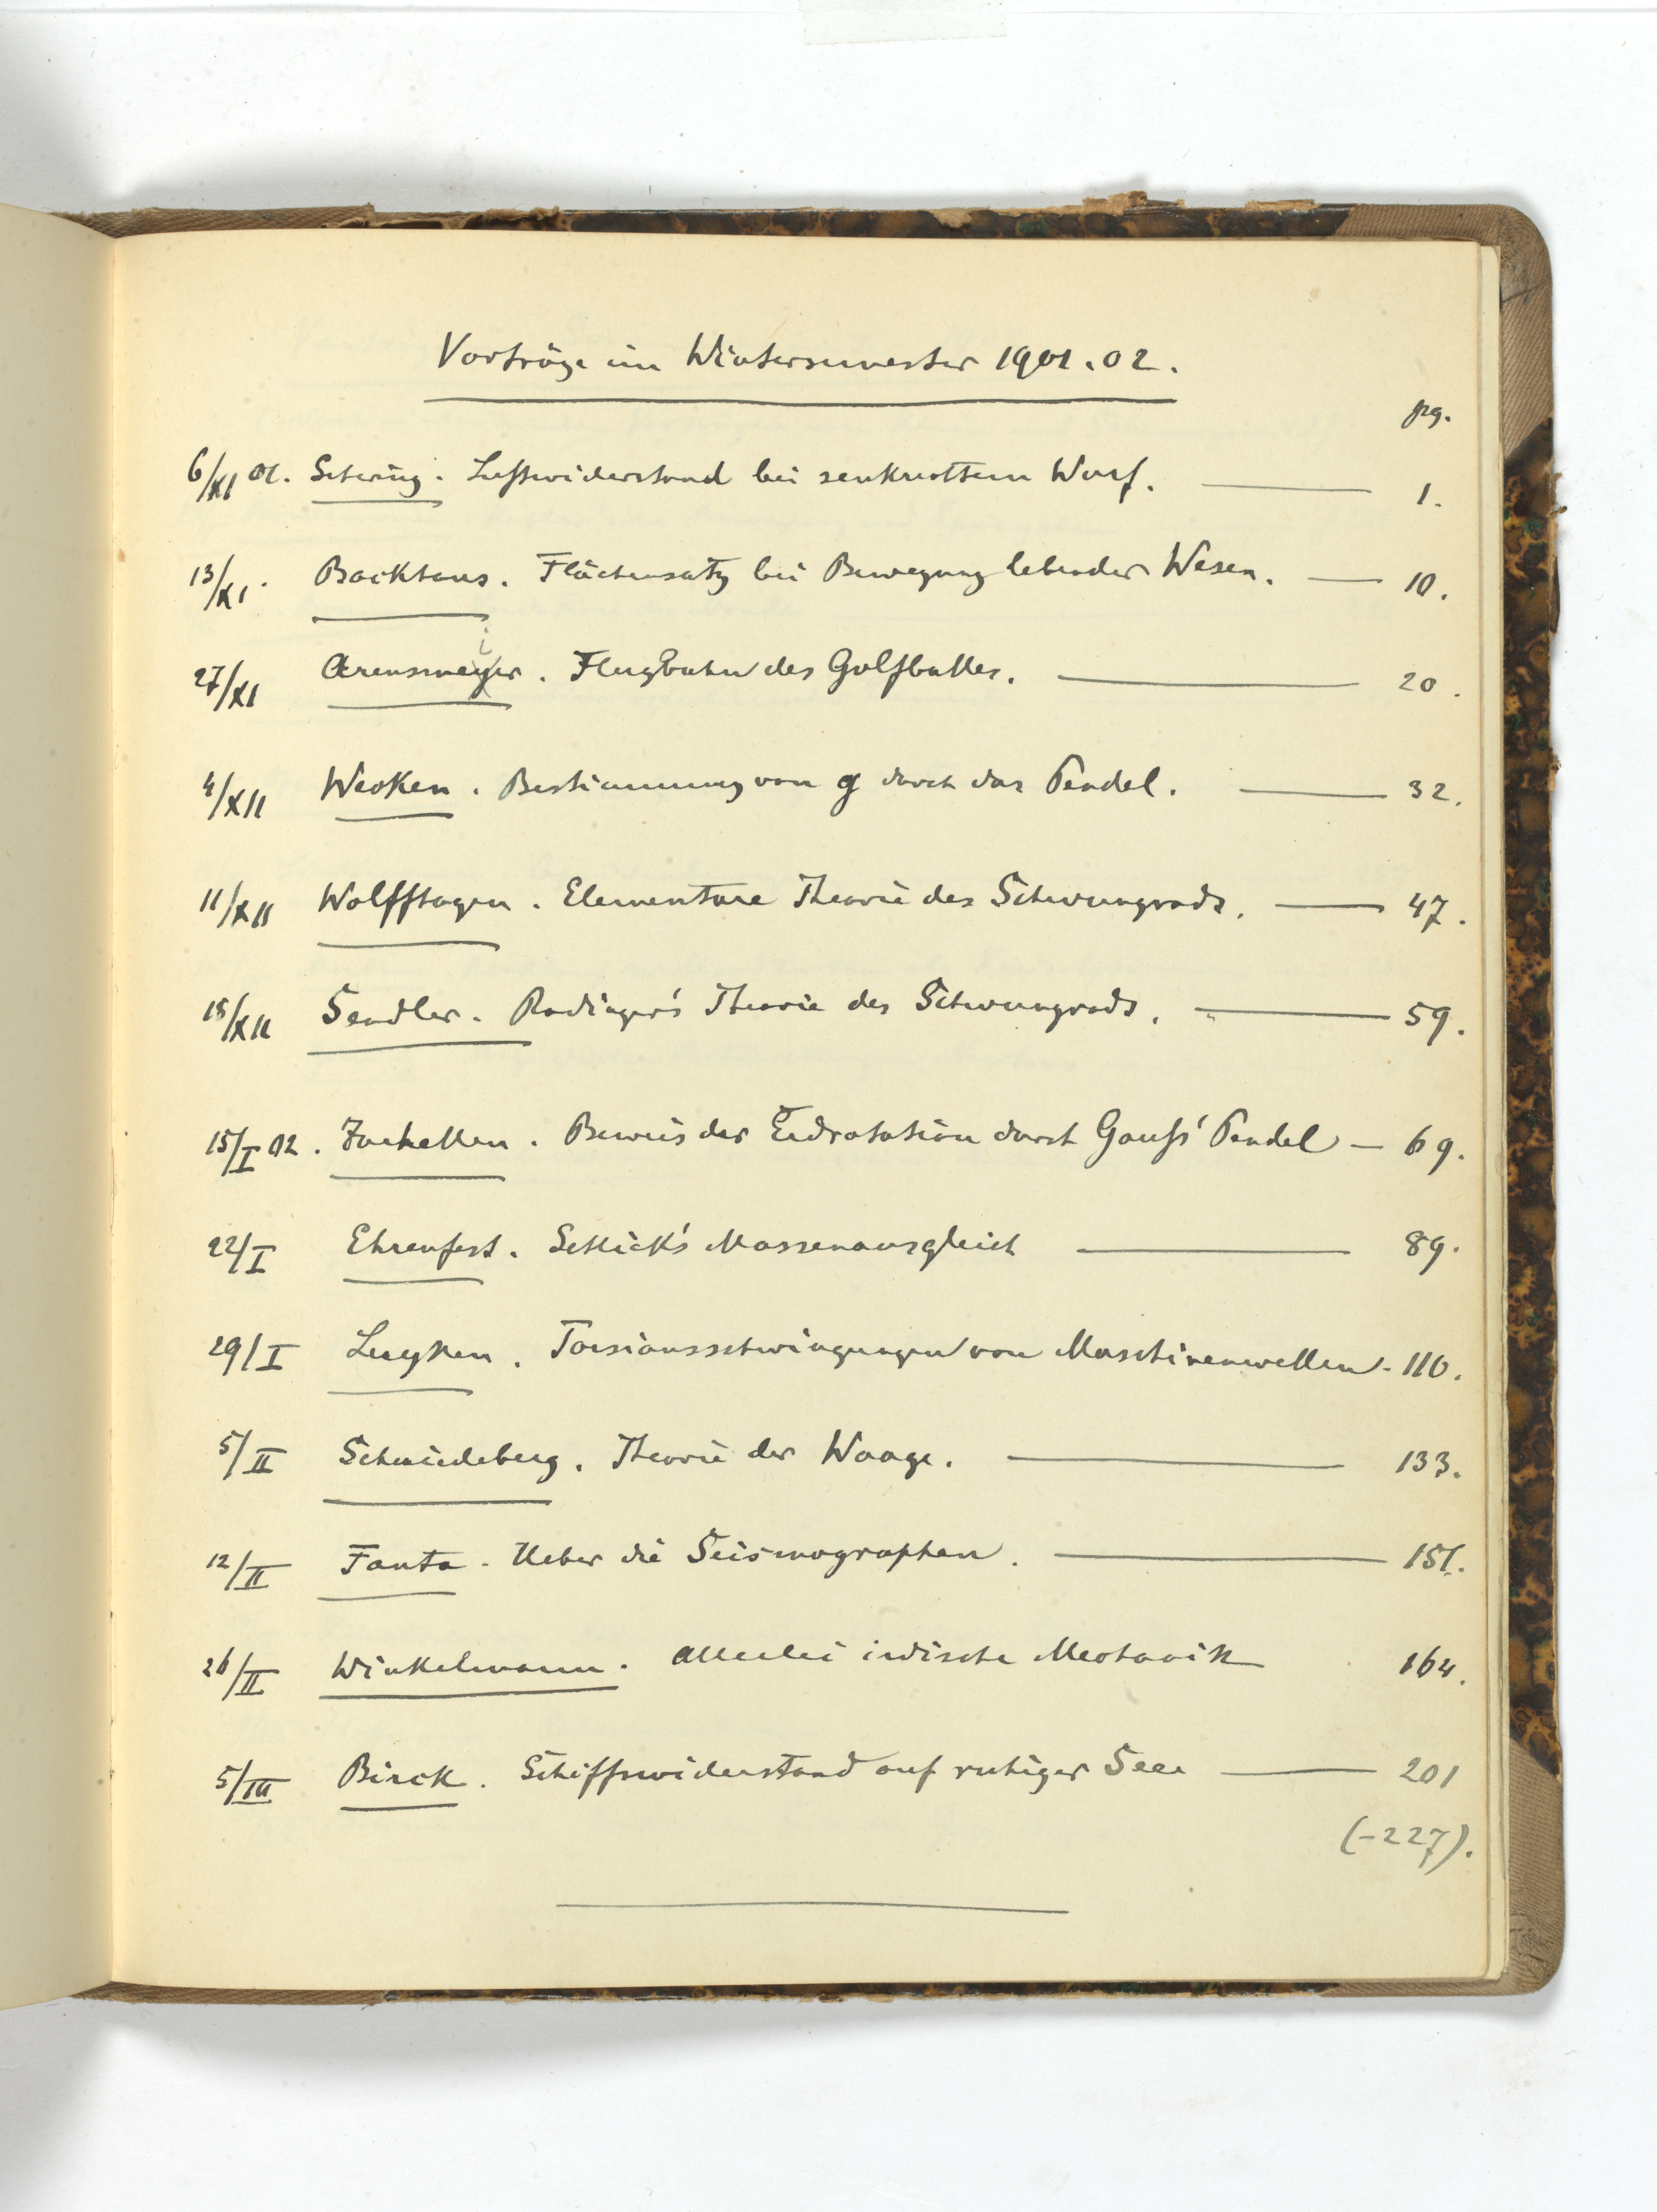 Vorträge im Wintersemester 1901.02.
pg.
6/XI 01. Schering. Luftwiderstand bei senkrechtem Wurf. 1.
13/XI. Backhaus. Flächensatz bei Bewegung lebender Wesen. 10.
27/XI Arensmeyer. Flugbahn des Golfballes. 20.
4/XII Wecken. Bestimmung von g durch das Pendel. 32.
11/XII Wolffhagen. Elementare Theorie des Schwungrads. 47.
18/XII Sendler. Radinger's Theorie des Schwungrads. 59.
15/I 02. Beweis der Erdrotation durch Gauß' Pendel — 69.
22/I Ehrenfest. Schlick's Massenausgleich 89.
29/I Luyken. Torsionsschwingungen von Maschinenwellen - 110.
5/II Schmiedeberg. Theorie der Waage. 133.
12/II Fanta. Ueber die Seismographen. 151.
26/II Winkelmann. Allerlei irdische Mechanik 164.
5/III Birck. Schiffswiderstand auf ruhiger See 201
(-227).